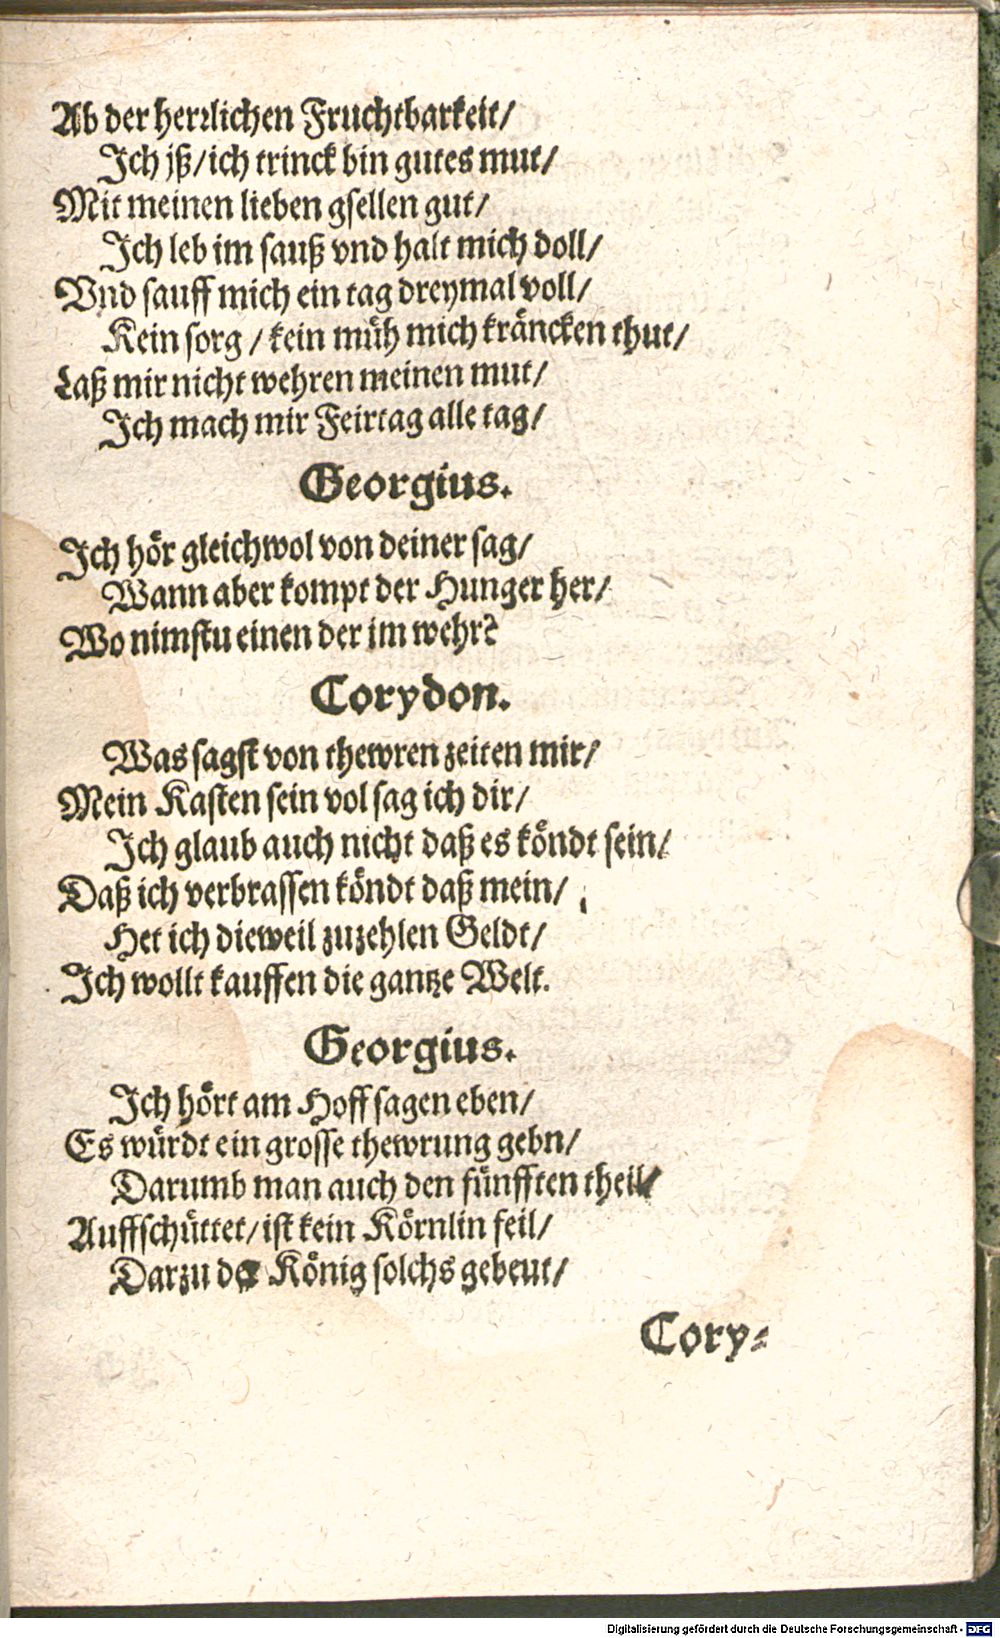 Ab der herꝛlichen Fruchtbarkeit/
Ich jß/ich trinck bin gutes mut/
Mit meinen lieben gsellen gut/
Ich leb im sauß vnd halt mich doll/
Vnd sauff mich ein tag dreymal voll/
Kein sorg / kein müh mich kräncken thut/
Laß mir nicht wehren meinen mut/
Ich mach mir Feirtag alle tag/
Georgius.
Ich hör gleichwol von deiner sag/
Wann aber kompt der Hunger her/
Wo nimstu einen der im wehr?
Corydon.
Was sagst von thewren zeiten mir/
Mein Kasten sein vol sag ich dir/
Ich glaub auch nicht daß es köndt sein/
Daß ich verbrassen köndt daß mein/
Het ich dieweil zuzehlen Geldt/
Ich wollt kauffen die gantze Welt.
Georgius.
Ich hört am Hoff sagen eben/
Es würdt ein grosse thewrung gebn/
Darumb man auch den fünfften theil/
Auffschüttet/ist kein Körnlin feil/
Darzu der König solchs gebeut/
Cory-
Digitalisierung gefördert durch die Deutsche Forschungsgemeinschaft - DFG